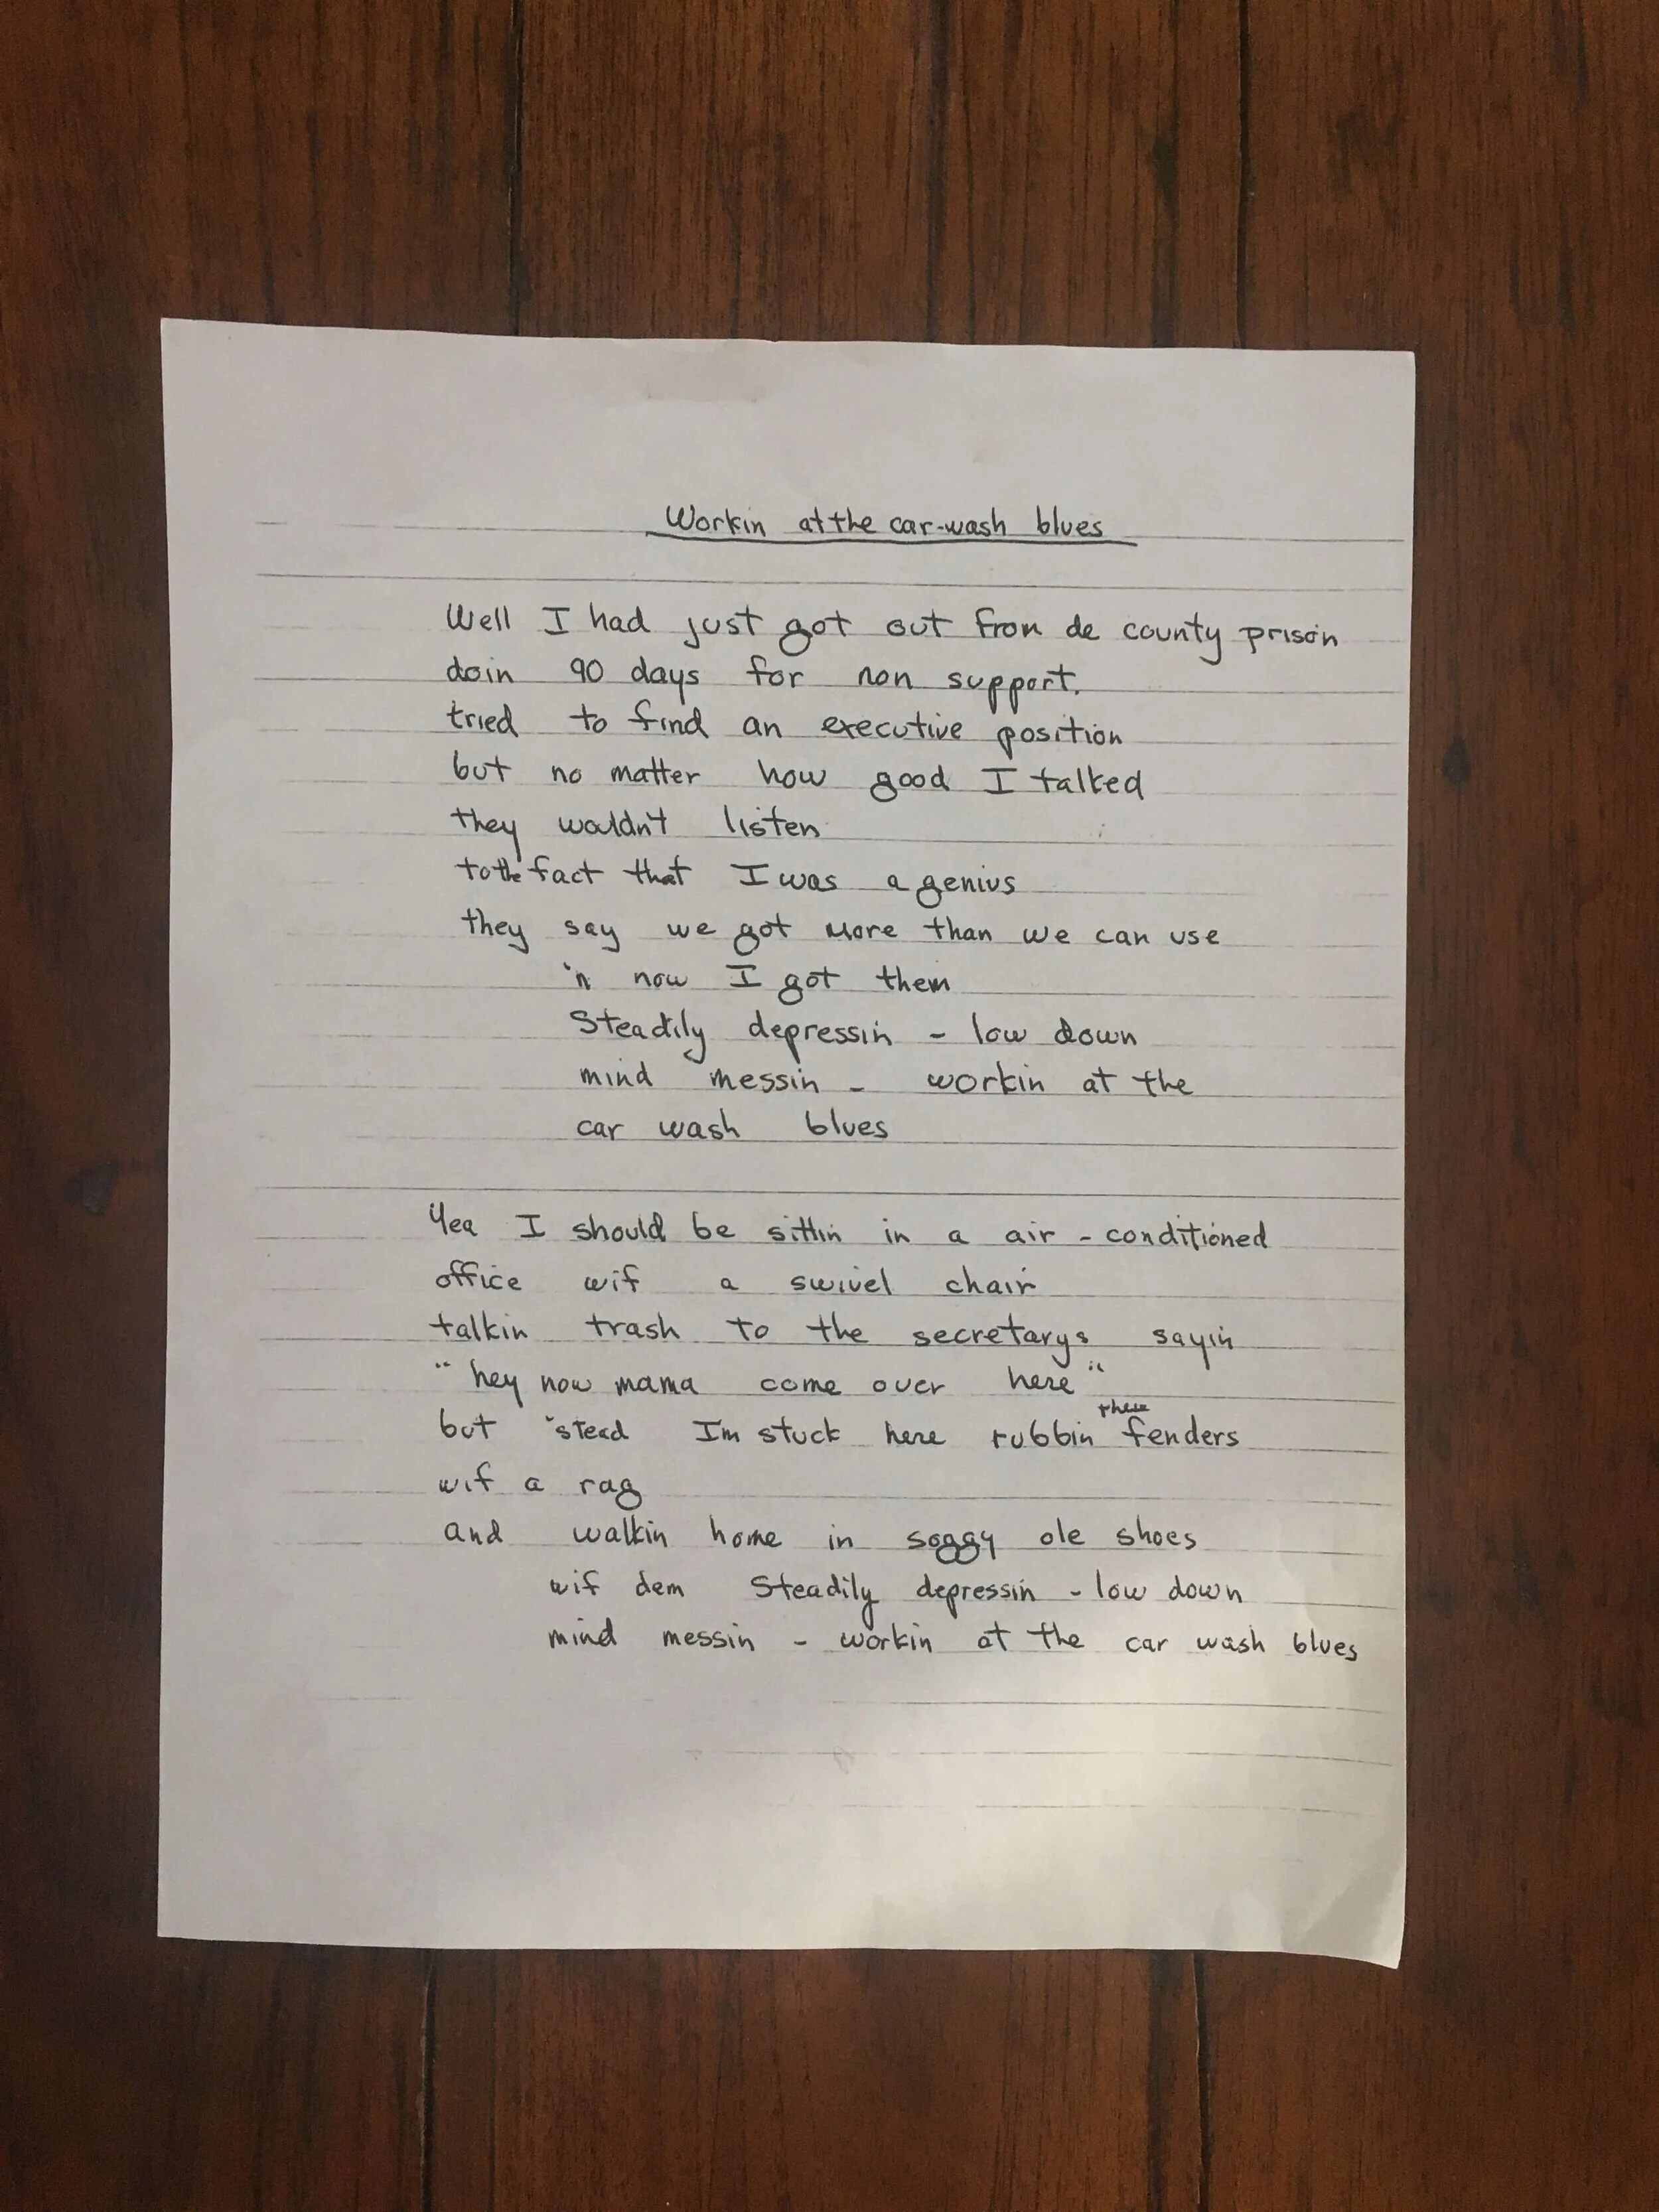 Workin at the car-wash blues
Well I had just got out from de county prison
doin 90 days for non support.
tried to find an executive position
but no matter how good I talked
they wouldn't listen
to the fact that I was a genius
they say we got more than we can use
'n now I got them
Steadily depressin - low down
mind messin - workin at the
car wash blues
Yea I should be sittin in a air-conditioned
office wif a swivel chair
talkin trash to the secretarys sayin
"hey now mama come over here"
but 'stead Im stuck here rubbin these fenders
wif a rag
and walkin home in soggy ole shoes
wif dem Steadily depressin - low down
mind messin - workin at the car wash blues